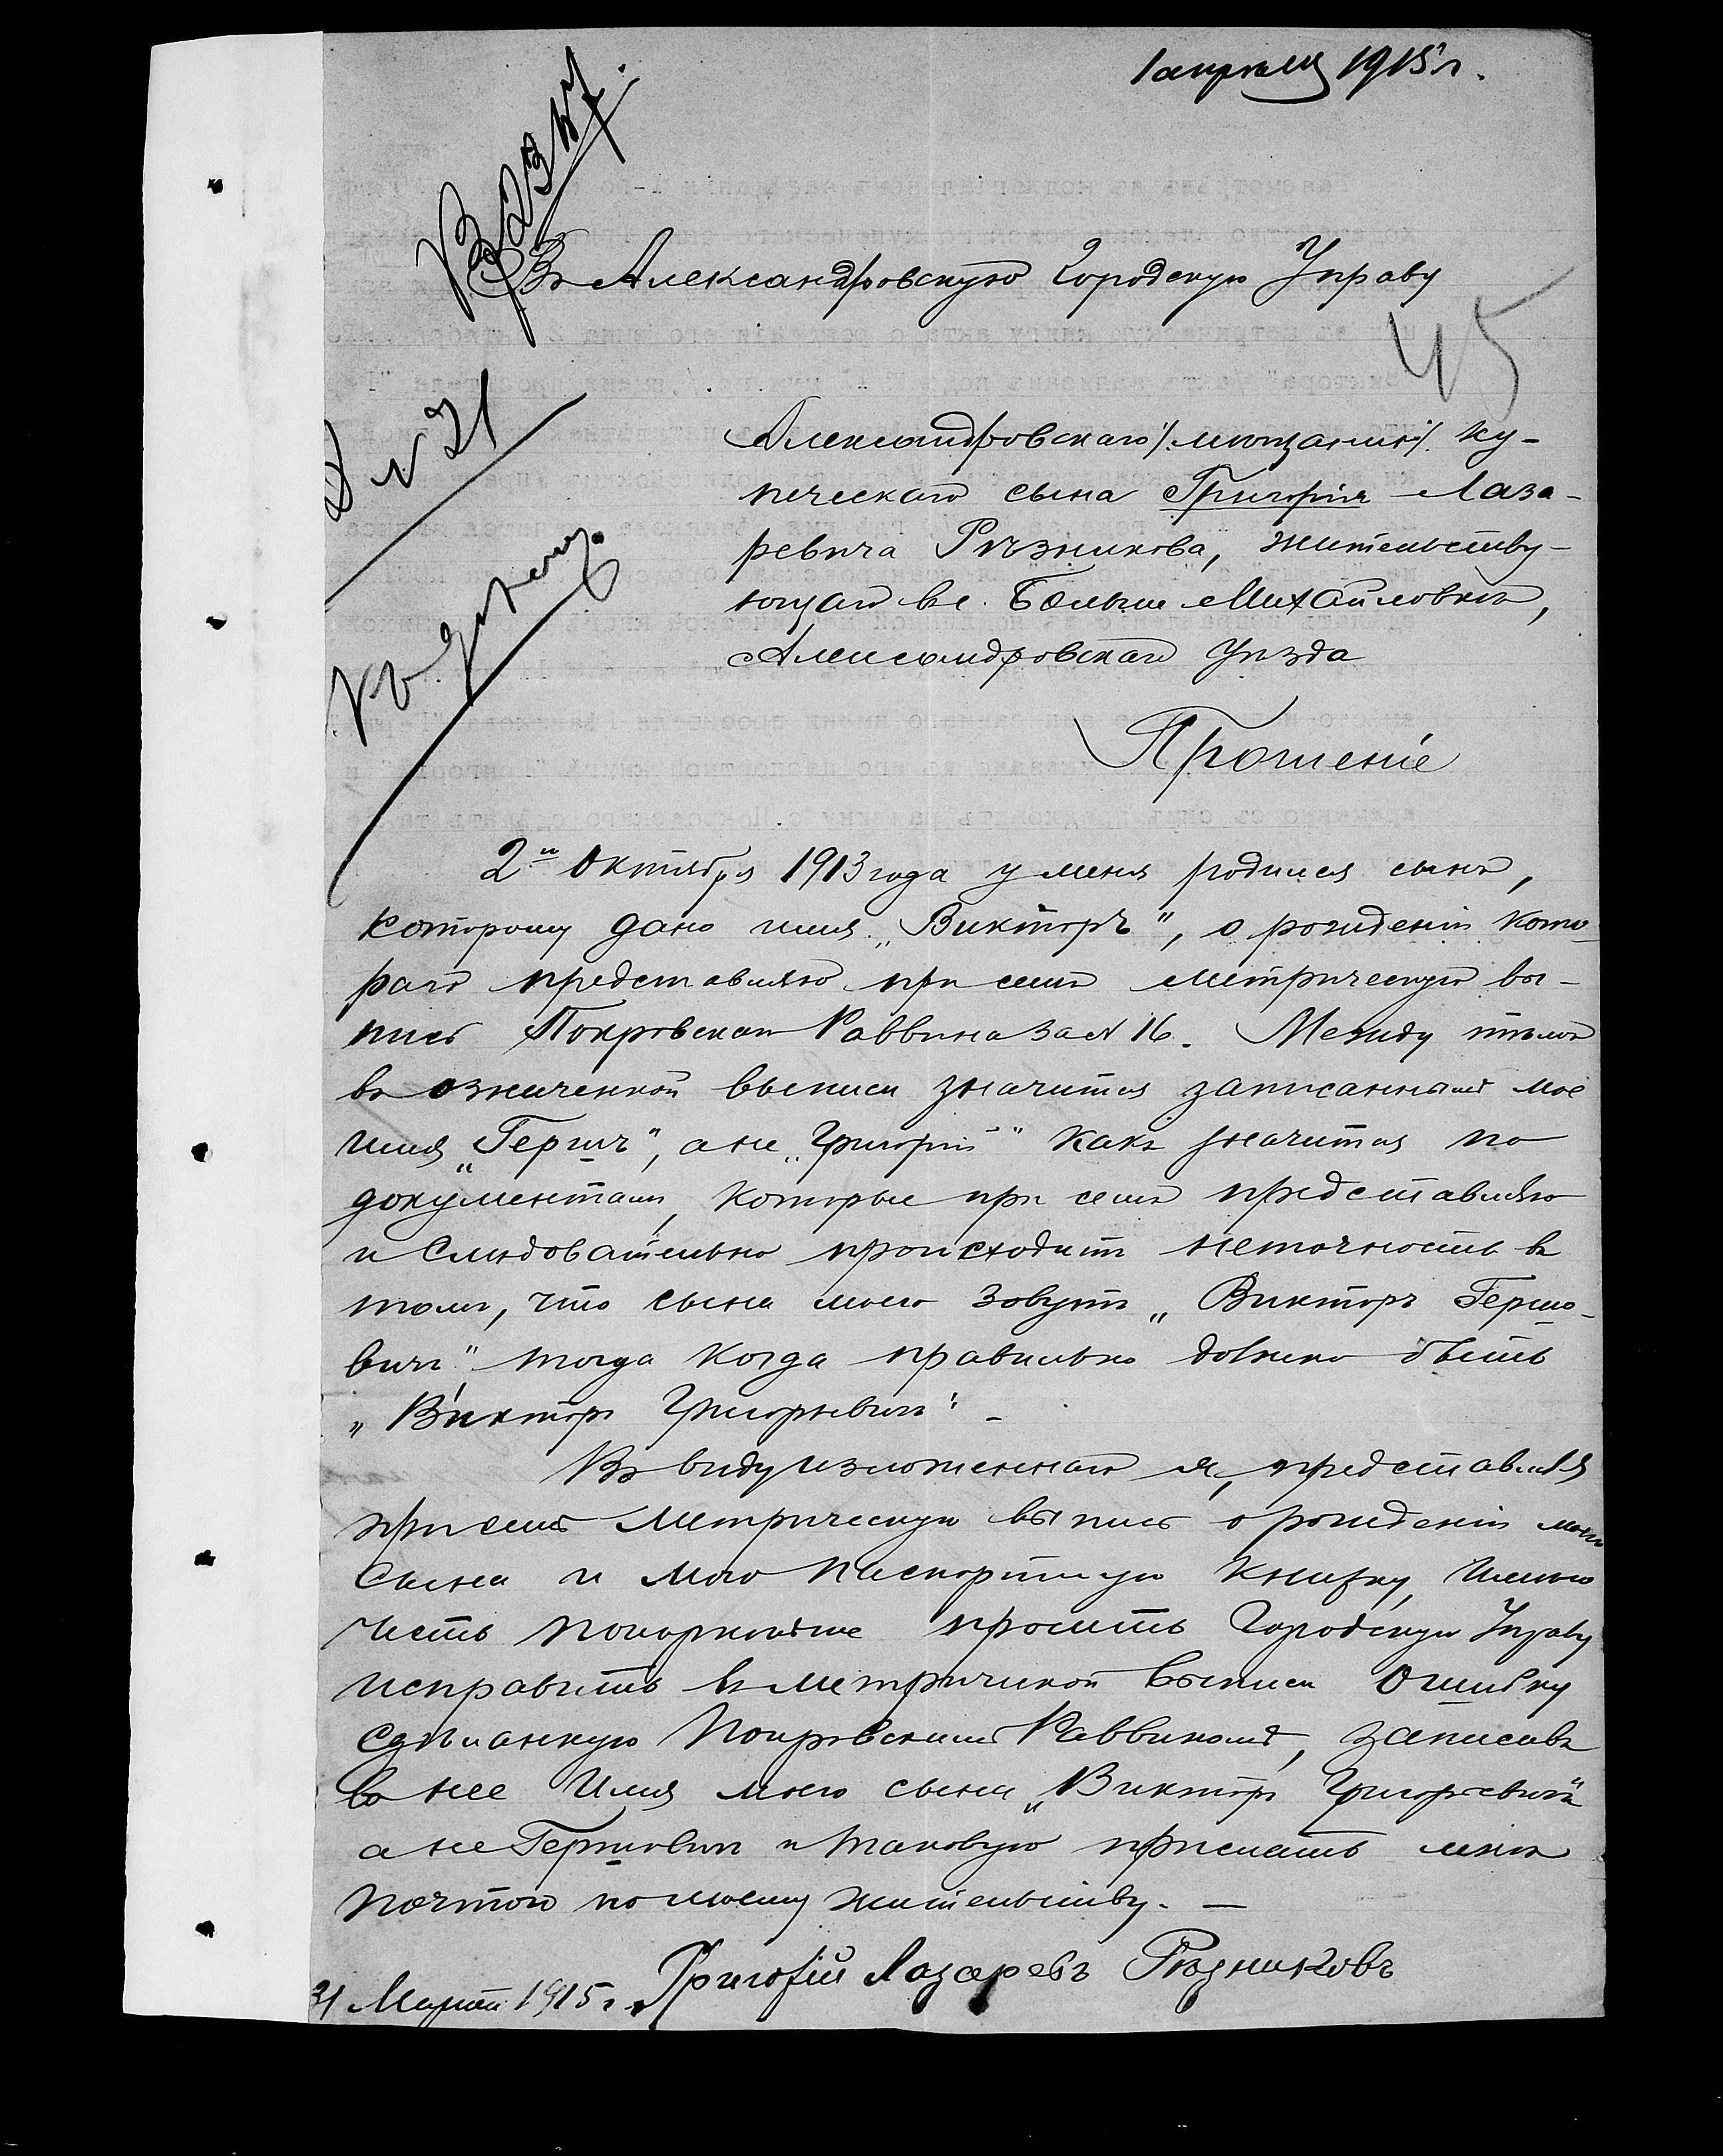 1 апрѣля 1915 г.
Въ Александровскую Городскую Управу
45
№ 21
Александровскаго /.мѣщанина/. ку-
печескаго сына Григорія Лаза-
ревича Рѣзникова, жительству-
ющаго въ с. Больше Михайловкѣ,
Александровскаго уѣзда
Прошеніе
2го Октября 1913 года у меня родился сынъ,
которому дано имя „Викторъ", о рожденіи кото-
раго представляю при семъ метрическую вы-
пись Покровскаго Раввина за № 16. Между тѣмъ
въ означенной выписи значится записаннымъ мое
имя „Гершъ", а не „Григорій" какъ значится по
документамъ, которые при семъ представляю
и слѣдовательно происходитъ неточность въ
томъ, что сына моего зовутъ „Викторъ Гершо-
вичъ" тогда когда правильно должно быть
„Викторъ Григорьевичъ". –
Въ виду изложеннаго я, представляя
при семъ метрическую выпись о рожденіи моего
сына и мою паспортную книжку, имѣю
честь покорнѣйше просить Городскую Управу
исправить въ метрической выписи ошибку
сдѣланную Покровскимъ Раввиномъ, записавъ
въ нее имя моего сына „Викторъ Григорьевичъ"
а не Гершовичъ и таковую прислать мнѣ
почтою по моему жительству. —
Григорій Лазаревъ Рѣзниковъ
31 Марта 1915 г.